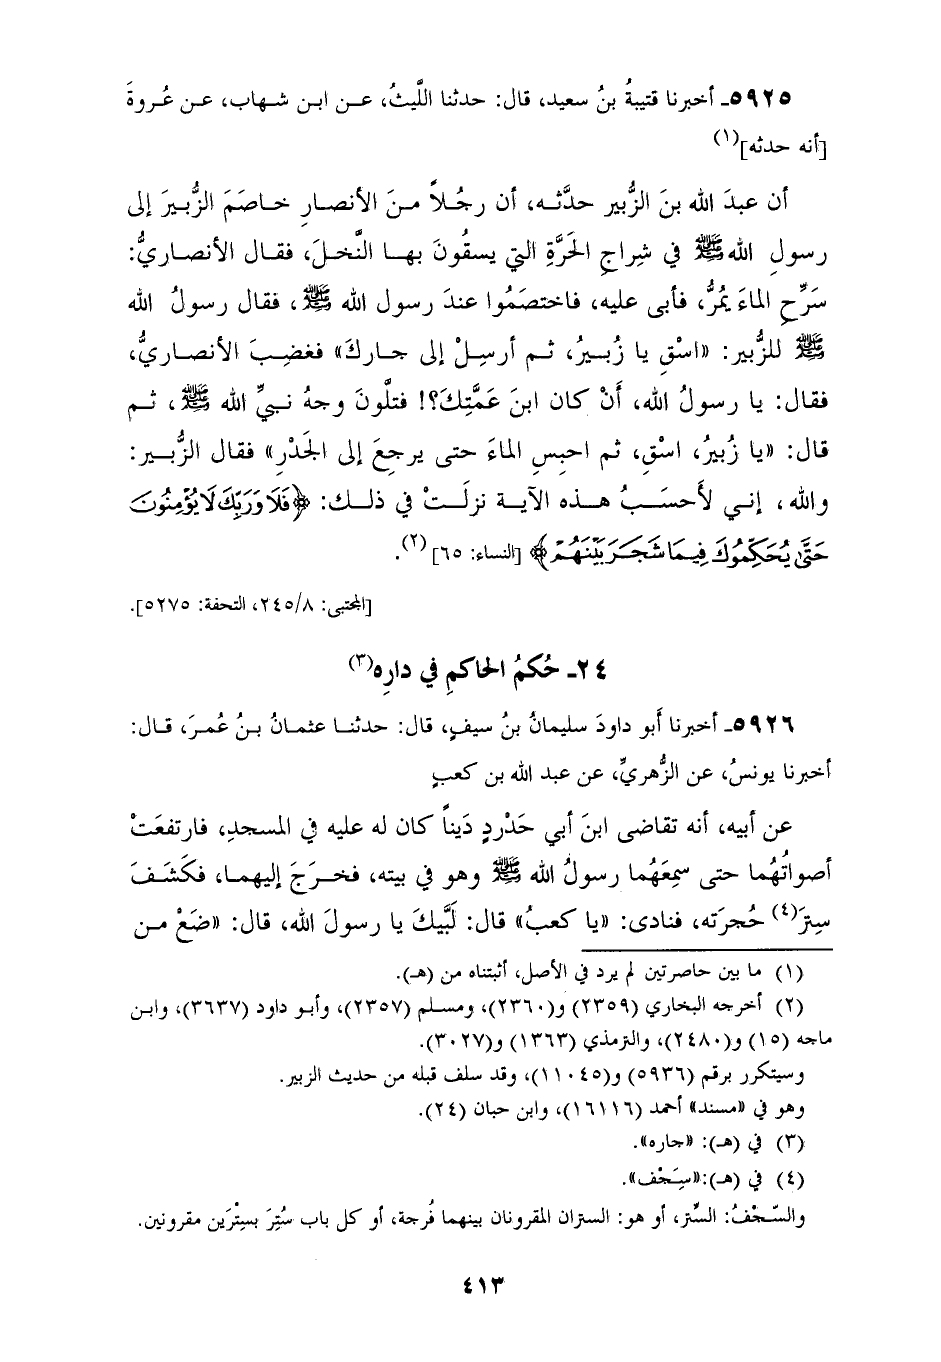 ٥٩٢٥ـ أخبرنا قتيبةُ بنُ سعيد، قال: حدثنا اللَّيثُ، عـن ابـن شـهاب، عـن عُـروةَ
[أنه حدثه](١)
أن عبدَ الله بنَ الزُّبير حدَّثـه، أن رجُـلاً مـنَ الأنصـارِ خـاصَمَ الزُّبـيرَ إلى
رسولِ اللهﷺ في شِراجِ الحَرَّةِ التي يسقُونَ بهـا النَّخـلَ، فقـال الأنصـاريُّ:
سَرِّحِ المـاءَ يَمُرُّ، فأبى عليه، فـاختصَمُوا عنـدَ رسـول الله ﷺ، فقـال رسـولُ الله
ﷺ للزُّبير: «اسْقِ يا زُبـيرُ، ثـم أرسِـلْ إلى جـارِكَ» فغضِـبَ الأنصـاريُّ،
فقـال: يـا رسـولُ الله، أَنْ كـان ابـنَ عَمَّتِـكَ؟! فتلَّـونَ وجـهُ نـبيِّ الله ﷺ، ثـم
قال: «يـا زُبـيرُ، اسْـقِ، ثـم احبِـسِ المـاءَ حتى يرجِـعَ إلى الجَـدْرِ» فقـال الزُّبـير:
والله، إنـي لأَحسَـبُ هـذه الآيـة نزلَـتْ في ذلـك: ﴿فَلَا وَرَبِّكَ لَا يُؤْمِنُونَ
حَتَّىٰ يُحَكِّمُوكَ فِيمَا شَجَرَ بَيْنَهُمْ﴾ [النساء: ٦٥](٢).
[المجتبى: ٢٤٥/٨، التحفة: ٥٢٧٥].
٢٤ـ حُكمُ الحاكمِ في دارِه(٣)
٥٩٢٦ـ أخبرنا أبو داودَ سليمانُ بنُ سيفٍ، قال: حدثنـا عثمـانُ بـنُ عُمـرَ، قـال:
أخبرنا يونسُ، عن الزُّهريِّ، عن عبد الله بن كعبٍ
عن أبيه، أنه تقاضى ابنَ أبي حَدْردٍ دَيناً كان له عليه في المسجدِ، فارتفعَتْ
أصواتُهُما حتى سمِعَهُما رسولُ الله ﷺ وهو في بيته، فخـرَجَ إليهمـا، فكَشَـفَ
سِترَ(٤) حُجرَته، فنادى: «يا كعبُ» قال: لَبَّيكَ يا رسولَ الله، قال: «ضَعْ مـن
(١) ما بين حاصرتين لم يرد في الأصل، أثبتناه من (هـ).
(٢) أخرجه البخاري (٢٣٥٩) و(٢٣٦٠)، ومسـلم (٢٣٥٧)، وأبـو داود (٣٦٣٧)، وابـن
ماجه (١٥) و(٢٤٨٠)، والترمذي (١٣٦٣) و(٣٠٢٧).
وسيتكرر برقم (٥٩٣٦) و(١١٠٤٥)، وقد سلف قبله من حديث الزبير.
وهو في «مسند» أحمد (١٦١١٦)، وابن حبان (٢٤).
(٣) في (هـ): «جاره».
(٤) في (هـ):«سِجْف».
والسِّجْفُ: السِّتر، أو هو: الستران المقرونان بينهما فُرجة، أو كل باب سُتِرَ بسِتْرَين مقرونين.
٤١٣